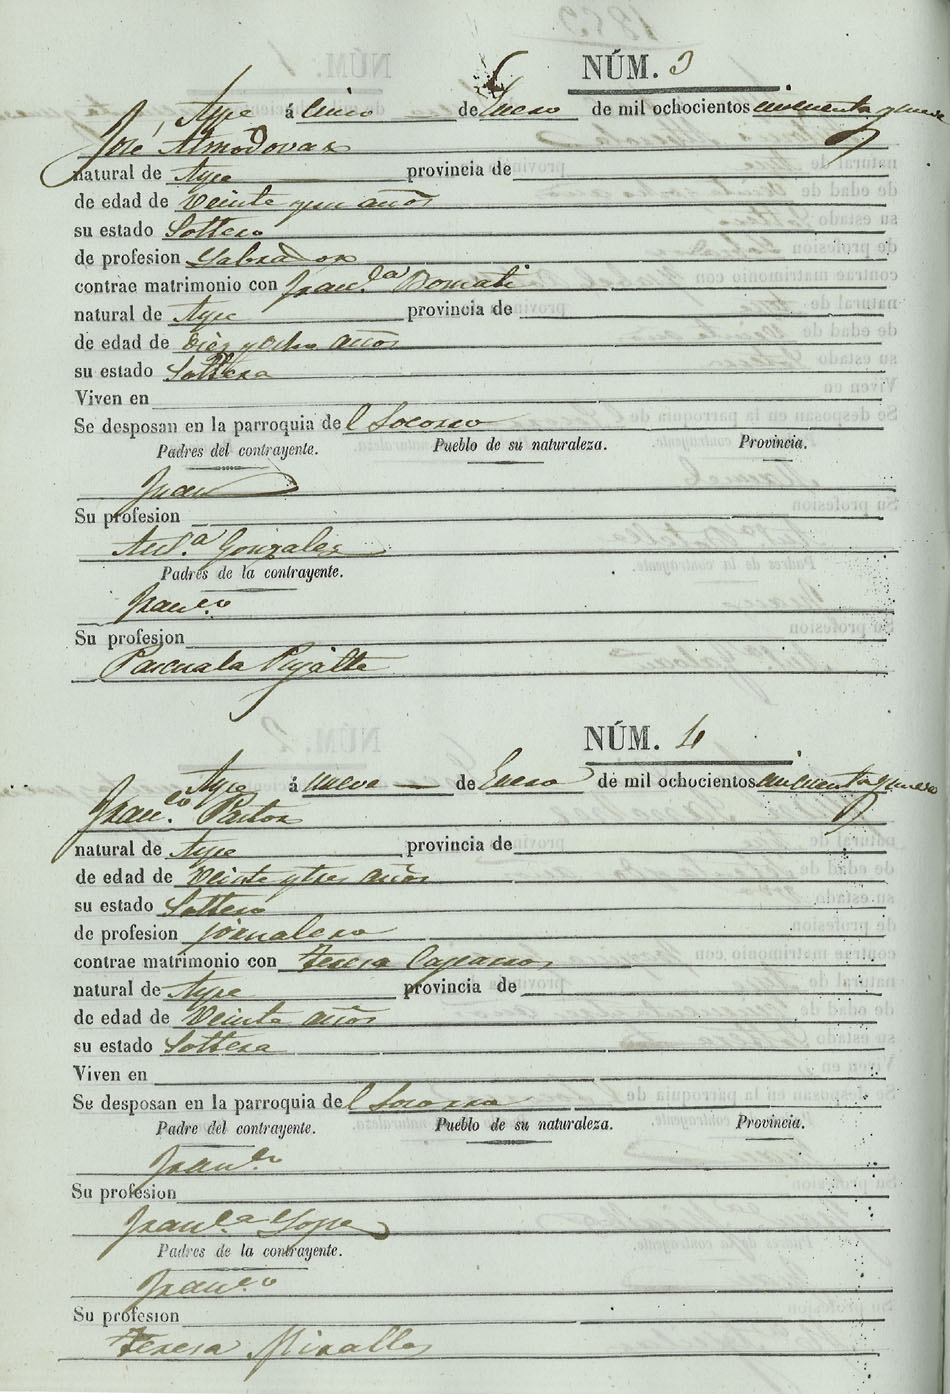 NÚM. 3
Aspe á cinco de Enero de mil ochocientos cincuenta y nueve
José Almodovar
natural de Aspe provincia de
de edad de veinte y un años
su estado Soltero
de profesion Labrador
contrae matrimonio con Fran.ca
natural de Aspe provincia de
de edad de diez y ocho años
su estado Soltera
Viven en
Se desposan en la parroquia del Socorro
Padres del contrayente. Pueblo de su naturaleza. Provincia.
Juan
Su profesion
Ant.a Gonzalez
Padres de la contrayente.
Fran.co
Su profesion
Pascuala Pujalte
NÚM. 4
Aspe á nueve de Enero de mil ochocientos cincuenta y nueve
Fran.co Pastor
natural de Aspe provincia de
de edad de veinte y tres años
su estado Soltero
de profesion jornalero
contrae matrimonio con Teresa
natural de Aspe provincia de
de edad de Veinte años
su estado Soltera
Viven en
Se desposan en la parroquia del Socorro
Padre del contrayente. Pueblo de su naturaleza. Provincia.
Fran.co
Su profesion
Fran.ca Lopez
Padres de la contrayente.
Fran.co
Su profesion
Teresa Miralles